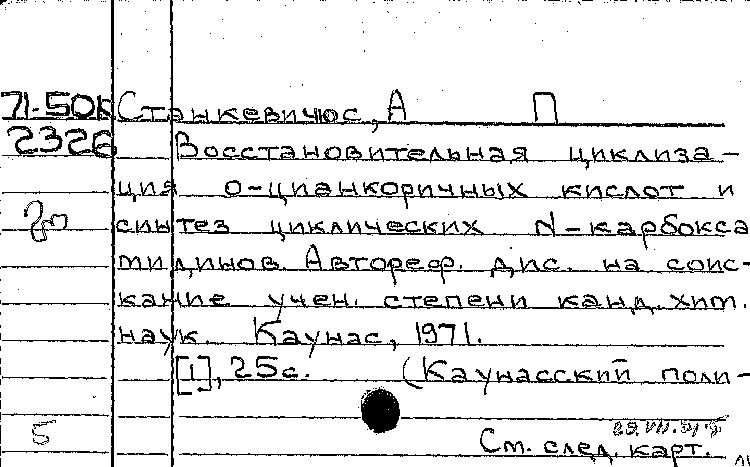 71-50к Станкевичюс, А П
2326 Восстановительная циклиза-
ция о-цианкоричных кислот и
синтез циклических N-карбокса
мидинов. Автореф. дис. на соис-
кание учен. степени канд. хим.
наук. Каунас, 1971.
[1], 25с. (Каунасский поли-
5
См. след. карт.